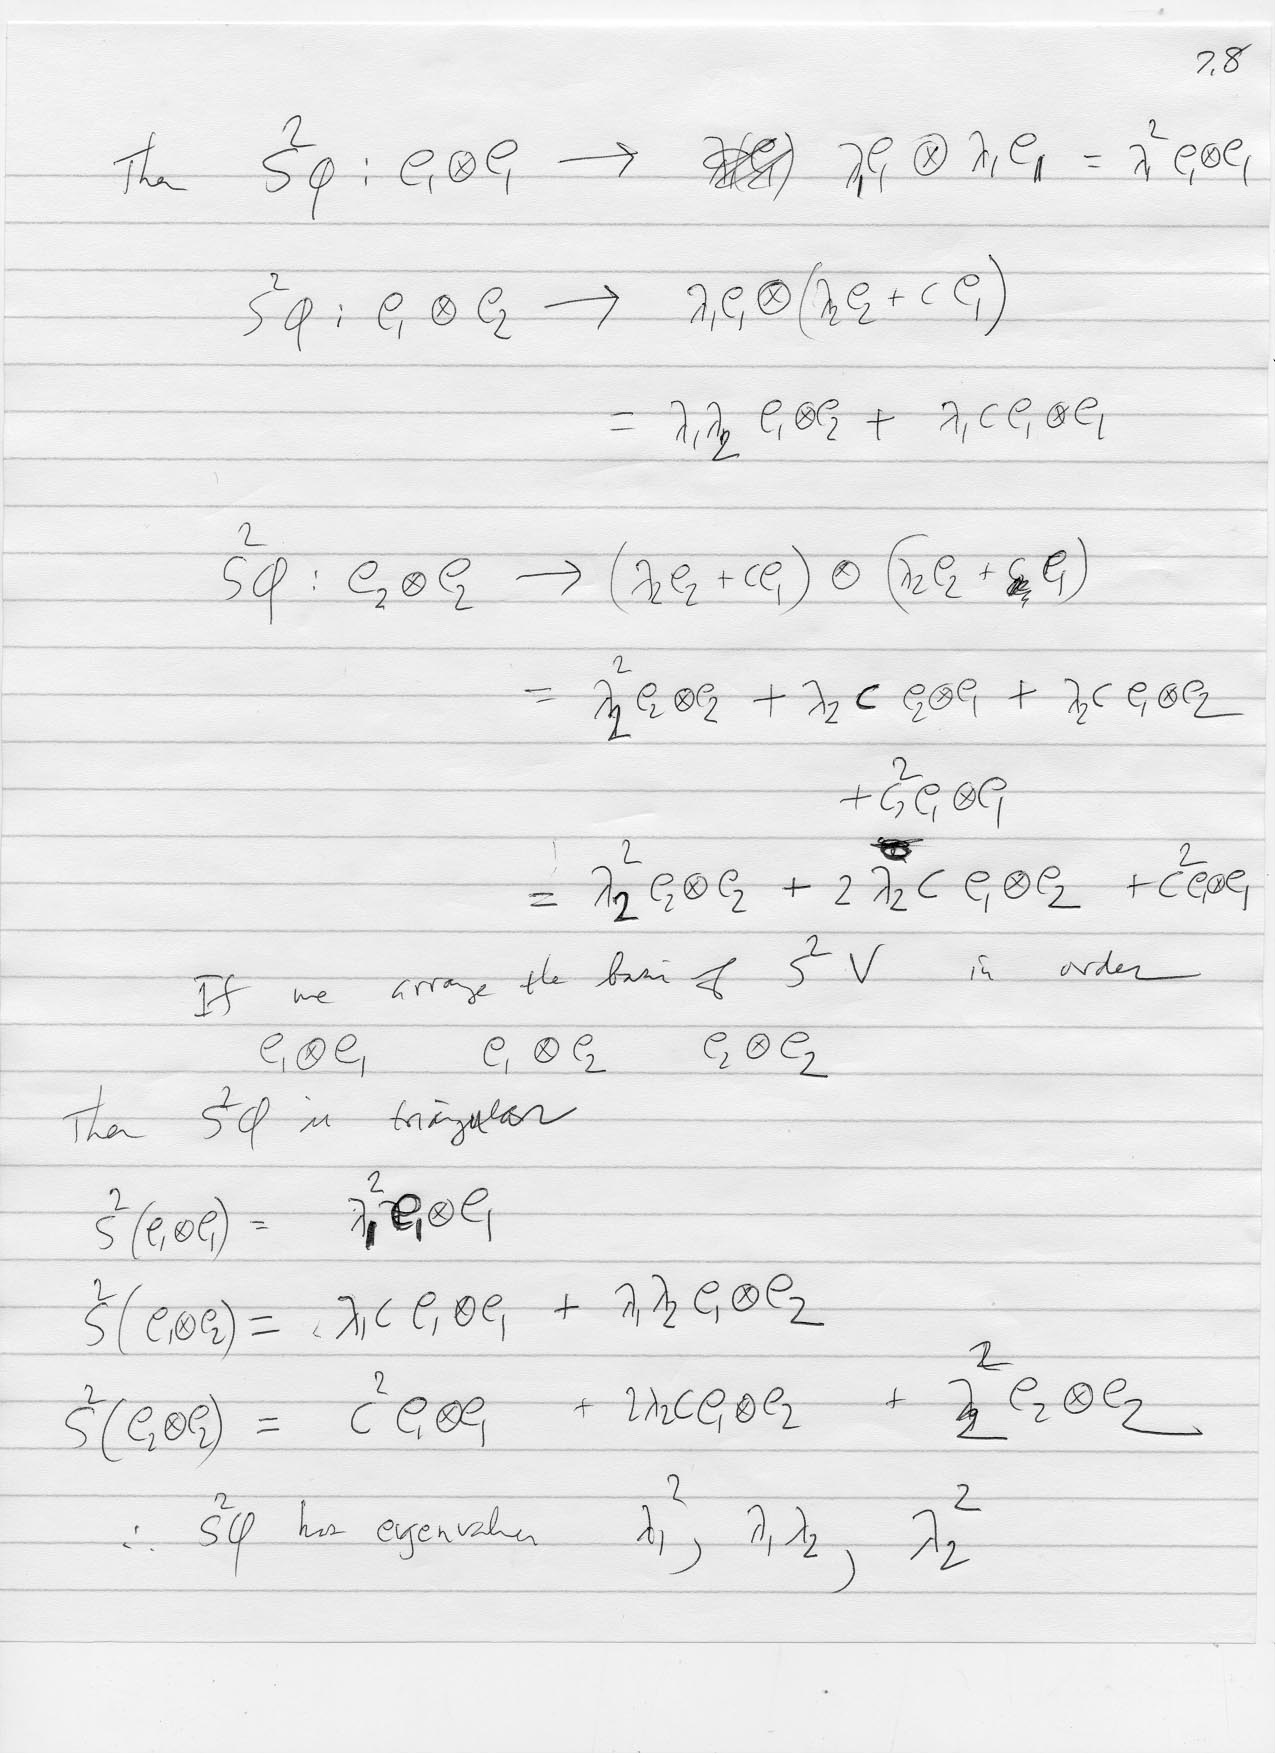 7.8
Then S²φ : e₁⊗e₁ → λ₁e₁ ⊗ λ₁e₁ = λ₁² e₁⊗e₁
S²φ : e₁ ⊗ e₂ → λ₁e₁⊗(λ₂e₂ + c e₁)
= λ₁λ₂ e₁⊗e₂ + λ₁c e₁⊗e₁
S²φ : e₂⊗e₂ → (λ₂e₂ + ce₁) ⊗ (λ₂e₂ + c e₁)
= λ₂² e₂⊗e₂ + λ₂ c e₂⊗e₁ + λ₂c e₁⊗e₂
+ c² e₁⊗e₁
= λ₂² e₂⊗e₂ + 2 λ₂ c e₁⊗e₂ + c² e₁⊗e₁
If we arrange the basis of S² V in order
e₁⊗e₁ e₁⊗e₂ e₂⊗e₂
Then S²φ is triangular
S²(e₁⊗e₁) = λ₁² e₁⊗e₁
S²(e₁⊗e₂) = λ₁c e₁⊗e₁ + λ₁λ₂ e₁⊗e₂
S²(e₂⊗e₂) = c² e₁⊗e₁ + 2λ₂c e₁⊗e₂ + λ₂² e₂⊗e₂
∴ S²φ has eigenvalues λ₁², λ₁λ₂, λ₂²